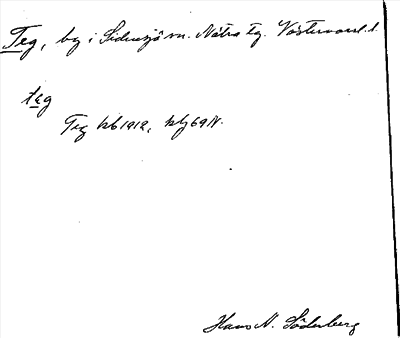 Teg, by i Sidensjö sn. Nätra tg. Västernorrl. l.
teg
Teg kb 1912, klj 69 N.
Hans N. Söderberg